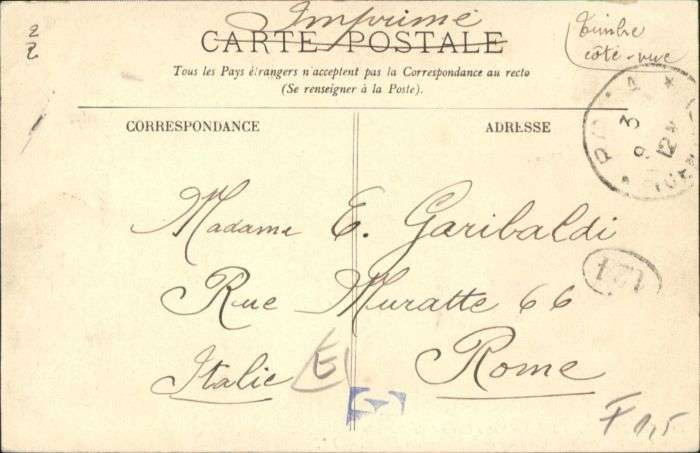 Imprimé
Timbre
côté-vue
CARTE POSTALE
Tous les Pays étrangers n'acceptent pas la Correspondance au recto
(Se renseigner à la Poste).
CORRESPONDANCE
ADRESSE
Madame E. Garibaldi
Rue Muratte 66
Italie
Rome
E